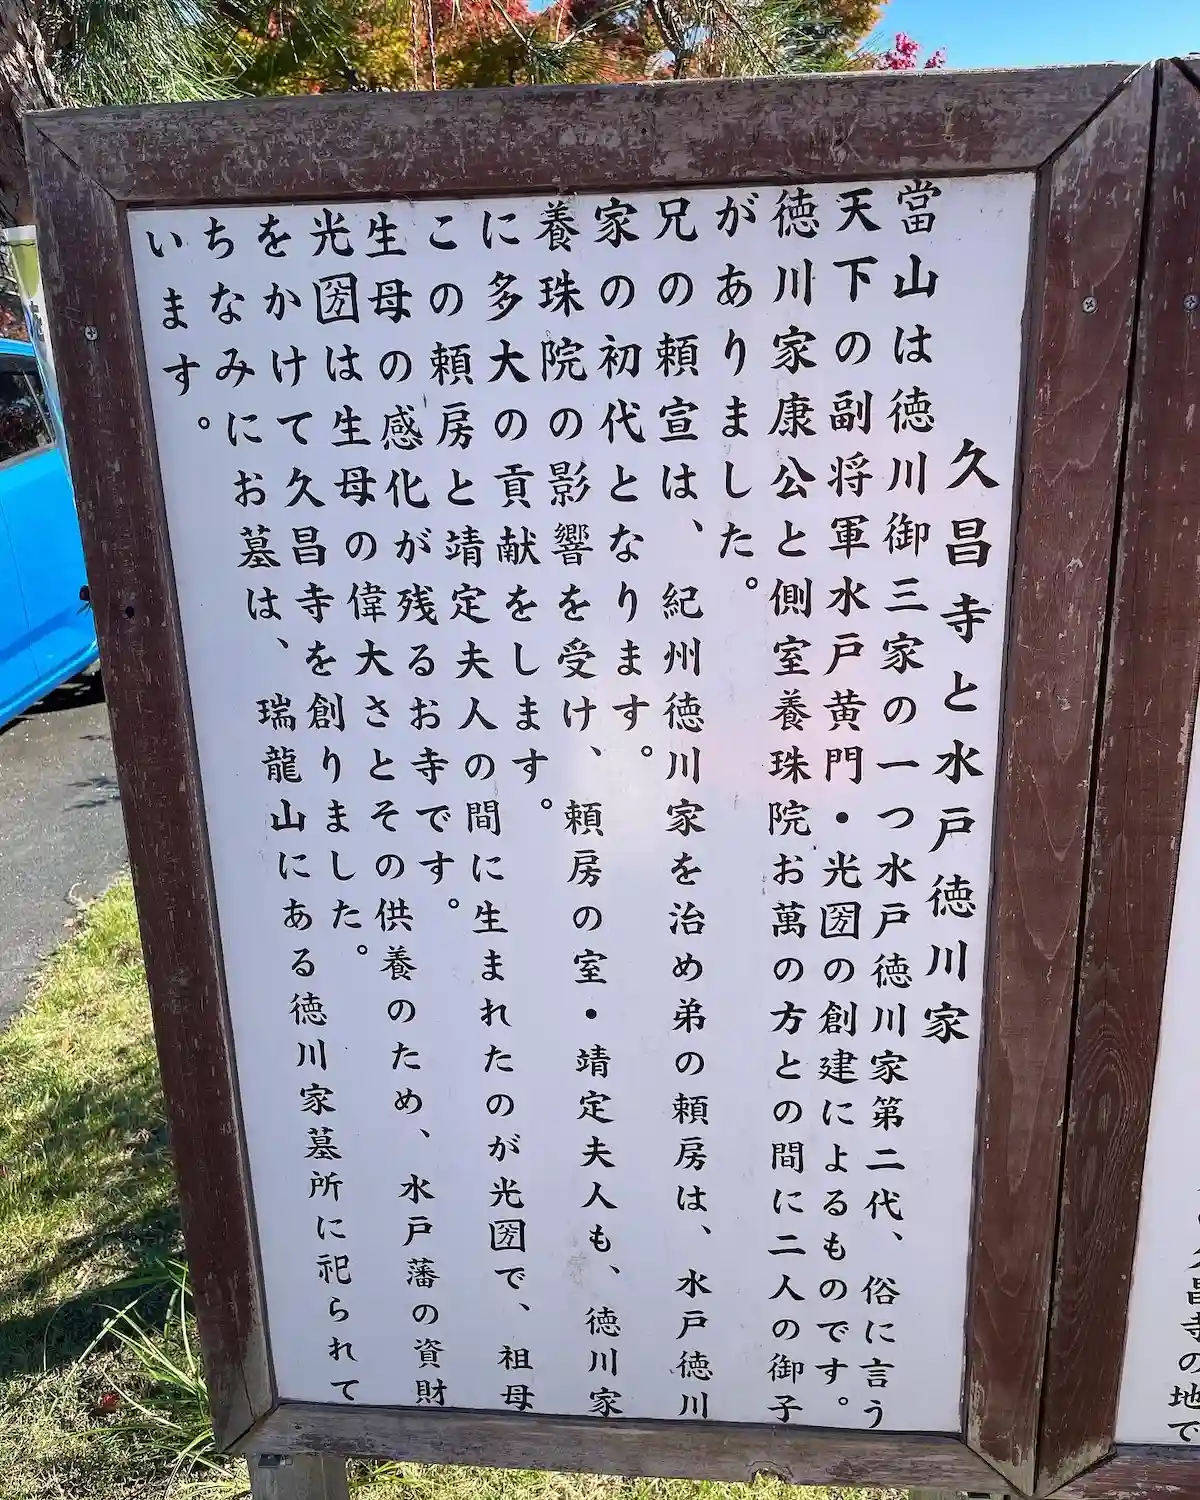 久昌寺と水戸徳川家
當山は徳川御三家の一つ水戸徳川家第二代、俗に言う
天下の副将軍水戸黄門・光圀の創建によるものです。
徳川家康公と側室養珠院お萬の方との間に二人の御子
がありました。
兄の頼宣は、紀州徳川家を治め弟の頼房は、水戸徳川
家の初代となります。
養珠院の影響を受け、頼房の室・靖定夫人も、徳川家
に多大の貢献をします。
この頼房と靖定夫人の間に生まれたのが光圀で、祖母
生母の感化が残るお寺です。
光圀は生母の偉大さとその供養のため、水戸藩の資財
をかけて久昌寺を創りました。
ちなみにお墓は、瑞龍山にある徳川家墓所に祀られて
います。
久昌寺の地で